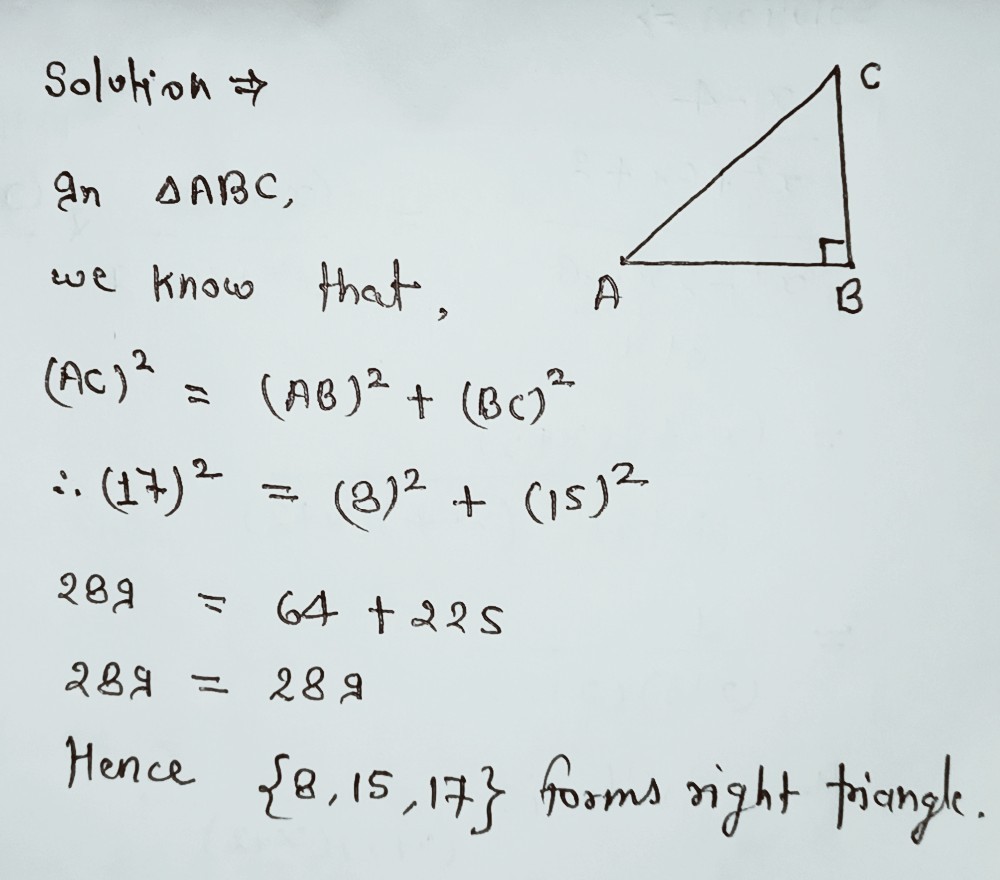 Solution ⇒
In ΔABC,
we know that,
(AC)² = (AB)² + (BC)²
∴ (17)² = (8)² + (15)²
289 = 64 + 225
289 = 289
Hence {8, 15, 17} forms right triangle.
C
A
B